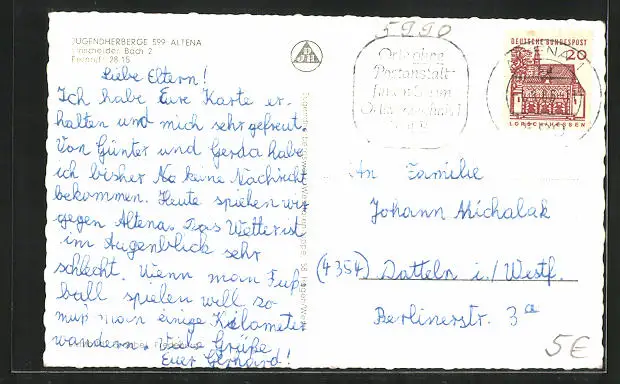 JUGENDHERBERGE 599 ALTENA
Bach 2
Fernruf: 28 15
Liebe Eltern!
Ich habe Eure Karte er-
halten und mich sehr gefreut.
Von Günter und Gerda habe
ich bisher No keine Nachricht
bekommen. Heute spielen wir
gegen Altena. Das Wetter ist
im Augenblick sehr
schlecht. Wenn man Fuß
ball spielen will so
muß man einige Kilometer
wandern. Viele Grüße
Euer Gerhard!
5990
Postanstalt
DEUTSCHE BUNDESPOST
20
LORSCH/HESSEN
An Familie
Johann Michalak
(4354) Datteln i./Westf.
Berlinerstr. 3a
5€